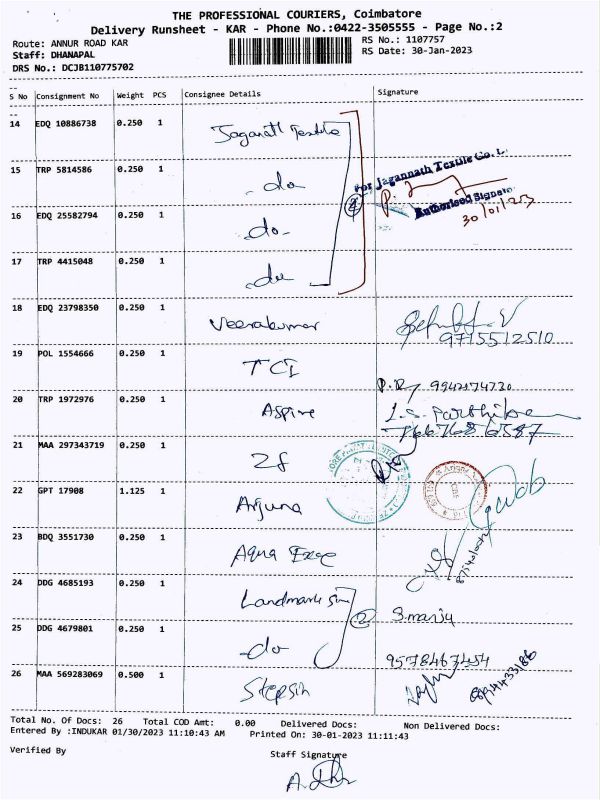 THE PROFESSIONAL COURIERS, Coimbatore
Delivery Runsheet - KAR - Phone No.:0422-3505555 - Page No.:2
Route: ANNUR ROAD KAR RS No.: 1107757
Staff: DHANAPAL RS Date: 30-Jan-2023
DRS No.: DCJB110775702
S No Consignment No Weight PCS Consignee Details Signature
14 EDQ 10886738 0.250 1 Jaganath Textile
15 TRP 5814586 0.250 1 -do
For Jagannath Textile Co. L
16 EDQ 25582794 0.250 1 -do-
Authorised Signato
30/01/23
17 TRP 4415048 0.250 1 -do
18 EDQ 23798350 0.250 1 Veerakumar
9715512510
19 POL 1554666 0.250 1 TCI
P.R 9942174730
20 TRP 1972976 0.250 1 Aspire
21 MAA 297343719 0.250 1 ZF
22 GPT 17908 1.125 1 Arjuna
23 BDQ 3551730 0.250 1 Aqua
24 DDG 4685193 0.250 1 Landmark
2
25 DDG 4679801 0.250 1 -do
26 MAA 569283069 0.500 1
Total No. Of Docs: 26 Total COD Amt: 0.00 Delivered Docs: Non Delivered Docs:
Entered By :INDUKAR 01/30/2023 11:10:43 AM Printed On: 30-01-2023 11:11:43
Verified By Staff Signature